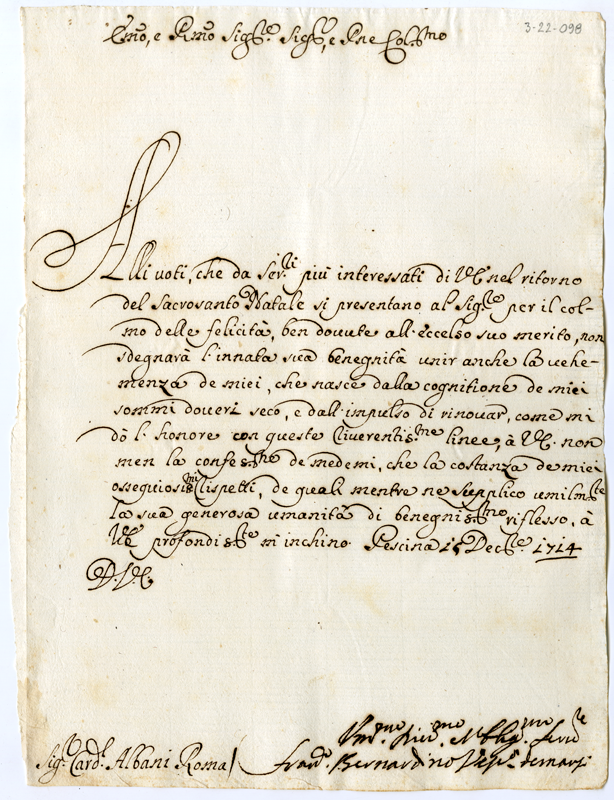 3-22-098
Emo, e Rmo Sigre Sigre, e Pne Colmo
Alli voti, che da Serli più interessati di VE. nel ritorno
del Sacrosanto Natale si presentano al Sigre per il col-
mo delle felicità, ben dovute all'eccelso suo merito, non
sdegnarà l'innata sua benegnità unir anche la vehe-
menza de miei, che nasce dalla cognitione de miei
sommi doveri seco, e dall'impulso di rinovar, come mi
dò l'honore con queste riverentisme linee, à VE. non
men la confesne de medemi, che la costanza de miei
ossequiosismi rispetti, de quali mentre ne supplico umilmte
la sua generosa umanità di benegnismo riflesso, à
VE. profondiste m'inchino. Pescina 15 Decre 1714
D. VE.
Sigr Cardl Albani Roma
Umo Divmo Obligmo Serre
Frad. Bernardino Vesc. de Marsi